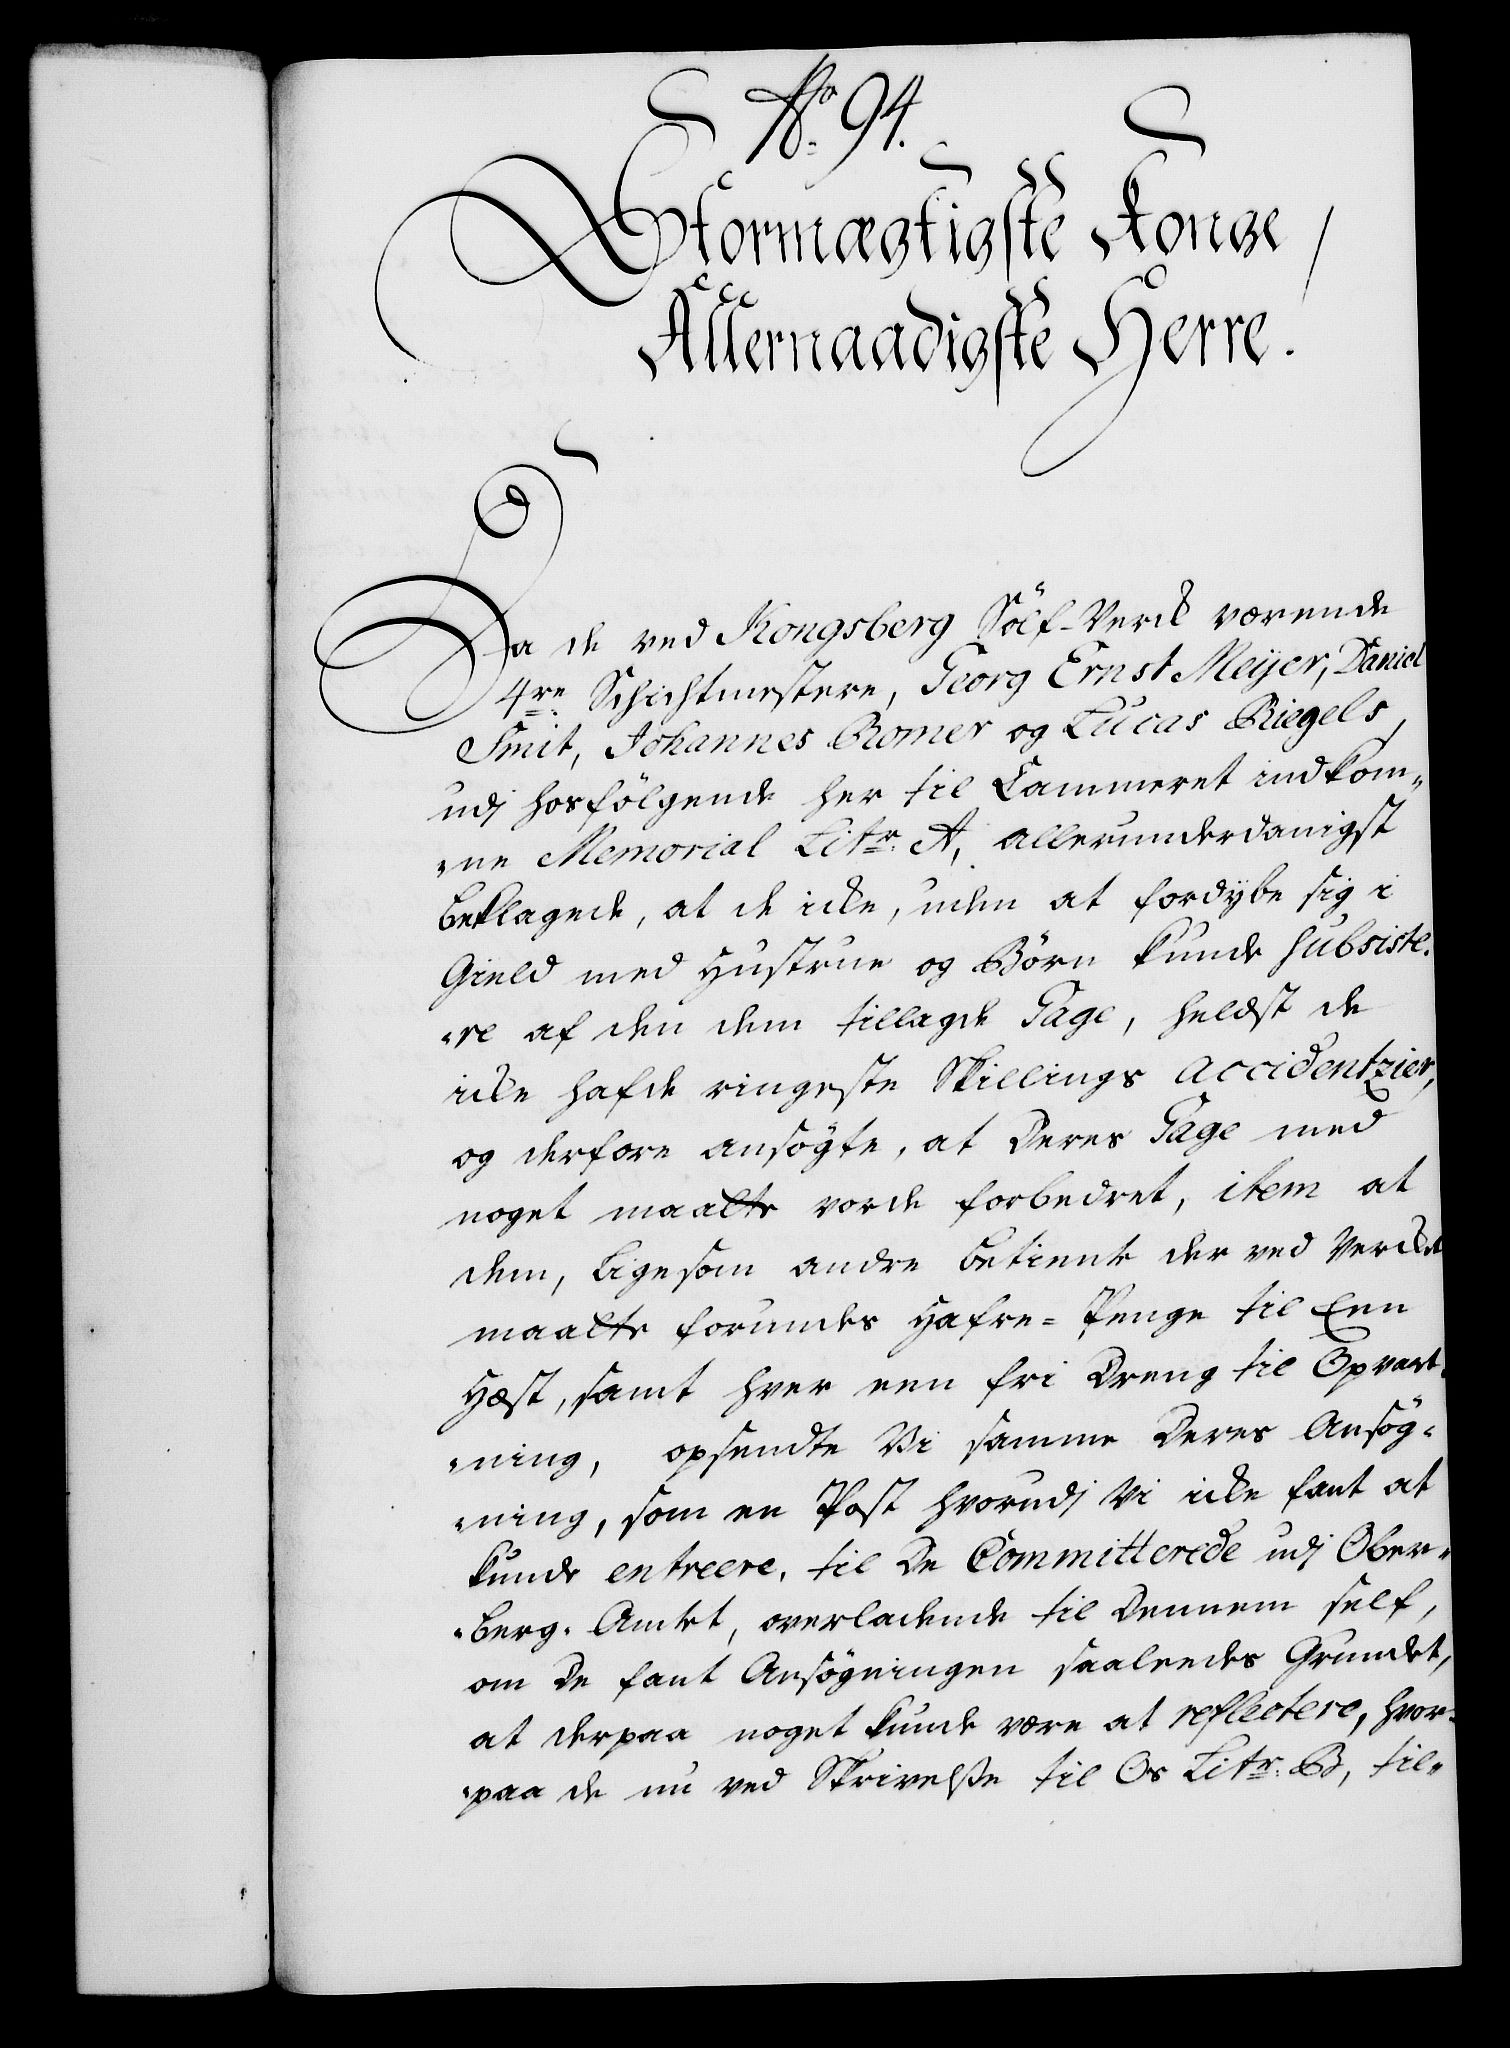 No. 94.
Stormægtigste Konge
Allernaadigste Herre.
Da de ved Kongsberg Sölf-Verck værende
4re Schichtmestere, Georg Ernst Meijer, Daniel
Smit, Johannes Romer og Lucas Riegels,
udj hosfölgende her til Cammeret indkom-
-ne Memorial Litr. A, allerunderdanigst
beklagede, at de icke, uden at fordÿbe sig i
Gield med Hustrue og Börn kunde subsiste-
-re af den dem tillagde Gage, helst de
icke hafde ringeste Skillings Accidentzier,
og derfore ansögte, at Deres Gage med
noget maatte vorde forbedret, item at
dem, ligesom andre betiente der ved Vercket
maatte forundes Hafre-Penge til Een
Hæst, samt hver een fri Dreng til Opvart-
-ning, opsendte Vi samme Deres Ansög-
-ning, som en Post hvorudj Vi icke fant at
kunde entreere, til De Committerede udj Ober-
-berg-Amtet, overladende til Dennem self,
om De fant Ansögningen saaleedes Grundet,
at derpaa noget kunde være at reflectere, hvor-
-paa de nu ved Skrivelße til Os Litr. B, til-